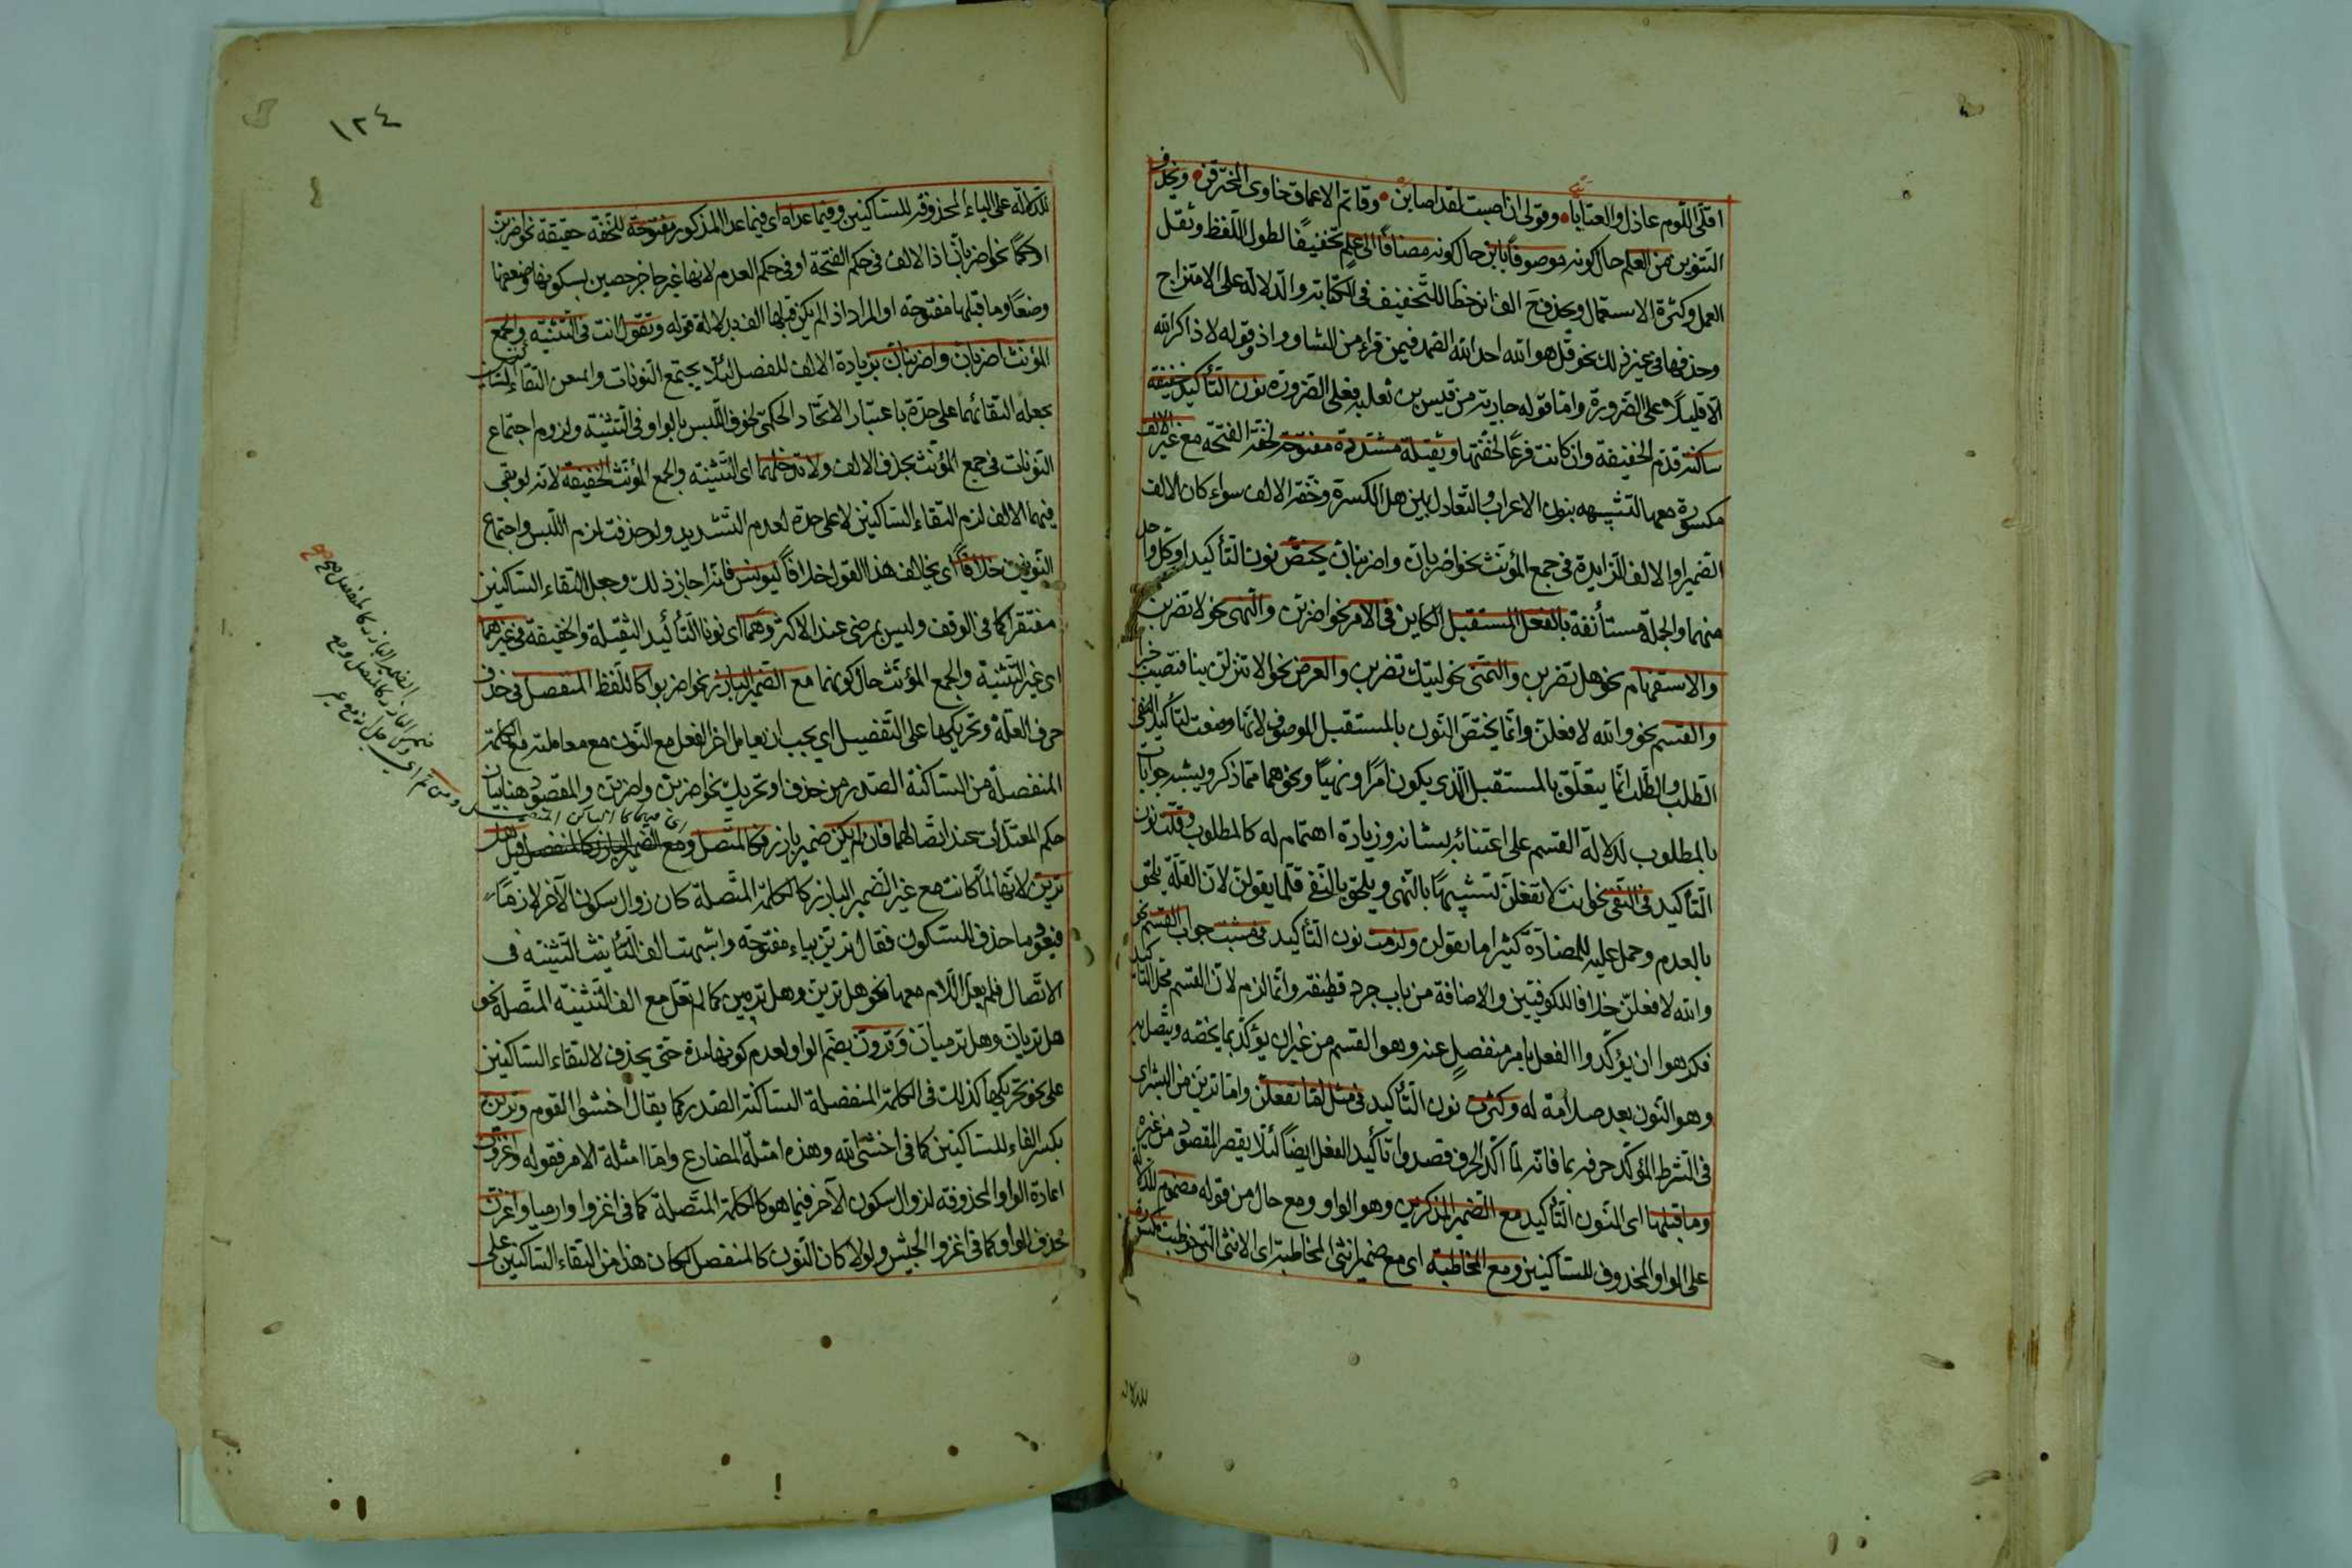 اقلّى اللّوم عاذل والعتابا • وقولى ان اصبت لقد اصابن • وقاتم الاعماق خاوى المخترقن • ويحذف
التنوين من العلم حال كونه موصوفًا بابن حال كونه مضافًا الى علم تخفيفًا لطول اللّفظ وثقل
العمل وكثرة الاستعمال ويحذف الف ابن خطا للتّخفيف فى الكتابة والدّلالة على الامتزاج
وحذفها فى غير ذلك نحو قل هو الله احد الله الصّمد فيمن قراء من الشاو واذ وقوله لا ذاكر الله
الّا قليلًا على الضّرورة وامّا قوله جارية من قيس بن ثعلبه فعلى الضّرورة نون التّأكيد خفيفة
ساكنة قدّم الخفيفة وان كانت فرعًا لخفّتها وثقيلة مشدّدة مفتوحة لخفّة الفتحة مع غير الالف
مكسورة معها لتشبيهه بنون الاعراب والتّعادل بين هل الكسرة وخفّة الالف سواء كان الالف
الضّمير او الالف الزايدة فى جمع المؤنّث نحو اضربانّ واضربنانّ يختصّ نون التّأكيد او كلّ واحد
منهما والجملة مستأنفة بالفعل المستقبل الكاين فى الامر نحو اضربنّ والنّهى نحو لا تضربنّ
والاستفهام نحو هل تضربن والتّمنّى نحو ليتك تضربن والعرض نحو الا تنزلنّ بنا فتصيب خيرا
والقسم نحو والله لافعلنّ وانّما يختصّ النّون بالمستقبل الموصوف لانّها وضعت لتأكيد النفى
الطّلب والطّلب انّما يتعلّق بالمستقبل الّذى يكون امرًا ونهيًا ونحوهما ممّا ذكر ويشبه جوابات
بالمطلوب لدلالة القسم على اعتنائه بشانه وزيادة اهتمام له كالمطلوب وقلّت نون
التّأكيد فى النّفى نحو انت لا تفعلنّ لتشبيهًا بالنّهى ويلحق بالنّفى قلّما يقولنّ لانّ القلّة يلحق
بالعدم وحمل عليه للمضادّة كثيرا ما يقولن ولزمت نون التّأكيد فى مثبت جواب القسم نحو
والله لافعلنّ خلافا للكوفيّين والاضافة من باب جرد قطيفة وانّما لزم لانّ القسم محلّ التأكيد
فكرهوا ان يؤكّدوا الفعل بامر منفصل عنه وهو القسم من غير ان يؤكّد بما يخصّه ويتّصل به
وهو النّون بعد صلامة له وكثرت نون التّأكيد فى مثل امّا تفعلنّ وامّا ترينّ من البشر اى
فى الشّرط المؤكّد حرفه بما فانّه لمّا اكّد الحرف قصدوا تأكيد الفعل ايضًا لئلّا يقصر المقصود من غيره
وما قبلها اى النّون التّأكيد مع الضّمير المذكرين وهو الواو ومع حال من قوله مضموم للدلالة
على الواو المحذوف للسّاكنين ومع المخاطبة اى مع ضمير انثى المخاطبة اى الانثى الّتى خوطبت مكسور
للدلالة
١٢٤
للدّلالة على الياء المحذوفة للسّاكنين وفيما عداه اى فيما عدا المذكور مفتوحة للخفّة حقيقة نحو اضربنّ
او حكمًا نحو اضربانّ اذ الالف فى حكم الفتحة او فى حكم العدم لانها غير حاجز حصين لسكونها وضعفها
وضعًا وما قبلها مفتوحة او المراد اذ الم يكن قبلها الف بدلالة قوله وتقول انت فى التّثنية والجمع
المؤنّث اضربانّ واضربنانّ بزيادة الالف للفصل لئلّا يجتمع النّونات ولم يعن التقاء السّاكنين
بجعله التقائهما على حدّة باعتبار الاتّحاد الحكمىّ لخوف اللّبس بالواو فى التّثنية ولزوم اجتماع
النّونات فى جمع المؤنّث بحذف الالف ولا تدخلهما اى التّثنية والجمع المؤنّث الخفيفة لانّه لو بقى
فيهما الالف لزم التقاء السّاكنين لا على حدة لعدم التّشديد ولو حذفت لزم اللّبس واجتماع
النّونين خلافًا اى يخالف هذا القول خلافًا ليونس فانّه اجاز ذلك وجعل التقاء السّاكنين
مغتفرا كما فى الوقف وليس بمرضى عند الاكثر وهما اى نونا التّأكيد الثّقيلة والخفيفة فى غيرهما
اى غير التّثنية والجمع المؤنّث حال كونهما مع الضّمير البارز نحو اضربوا كاللّفظ المنفصل فى حذف
حرف العلّة وتحريكها على التّفصيل اى يجب ان يعامل اخر الفعل مع النّون مع معاملته مع الكلمة
المنفصلة من السّاكنة الصّدر من حذف او تحريك نحو اضربنّ واضربن والمقصود هنا بيان
حكم المعتلّ اى عند اتّصالهما فان لم يكن ضمير بارز فكالمتّصل ومع الضّمير البارز كالمنفصل قيل هل
ترينّ لانّها لمّا كانت مع غير الضّمير البارز كالكلمة المتّصلة كان زوال سكون الآخر لازمًا
فيعود ما حذف للسّكون فقال ترينّ بياء مفتوحة واشبهت الف التّأنيث التّثنية فى
الاتّصال فلم يعلّ اللّام معها نحو هل ترينّ وهل ترمين كما لم تعلّ مع الف التّثنية المتّصلة نحو
هل تريانّ وهل ترميانّ وترونّ بضمّ الواو لعدم كونها مدة حتى يحذف لالتقاء السّاكنين
على نحو تحريكها كذلك فى الكلمة المنفصلة السّاكنة الصّدر كما يقال اخشوا القوم وترين
بكسر الفاء للسّاكنين كما فى اخشى الله وهذه امثلة المضارع وامّا امثلة الامر فقوله واغزونّ
اعادة الواو المحذوفة لزوال سكون الآخر فيما هو كالكلمة المتّصلة كما فى اغزوا وارميا واغزنّ
حذف الواو كما فى اغزوا الجيش ولولا كان النّون كالمنفصل لكان هذا من التقاء السّاكنين على